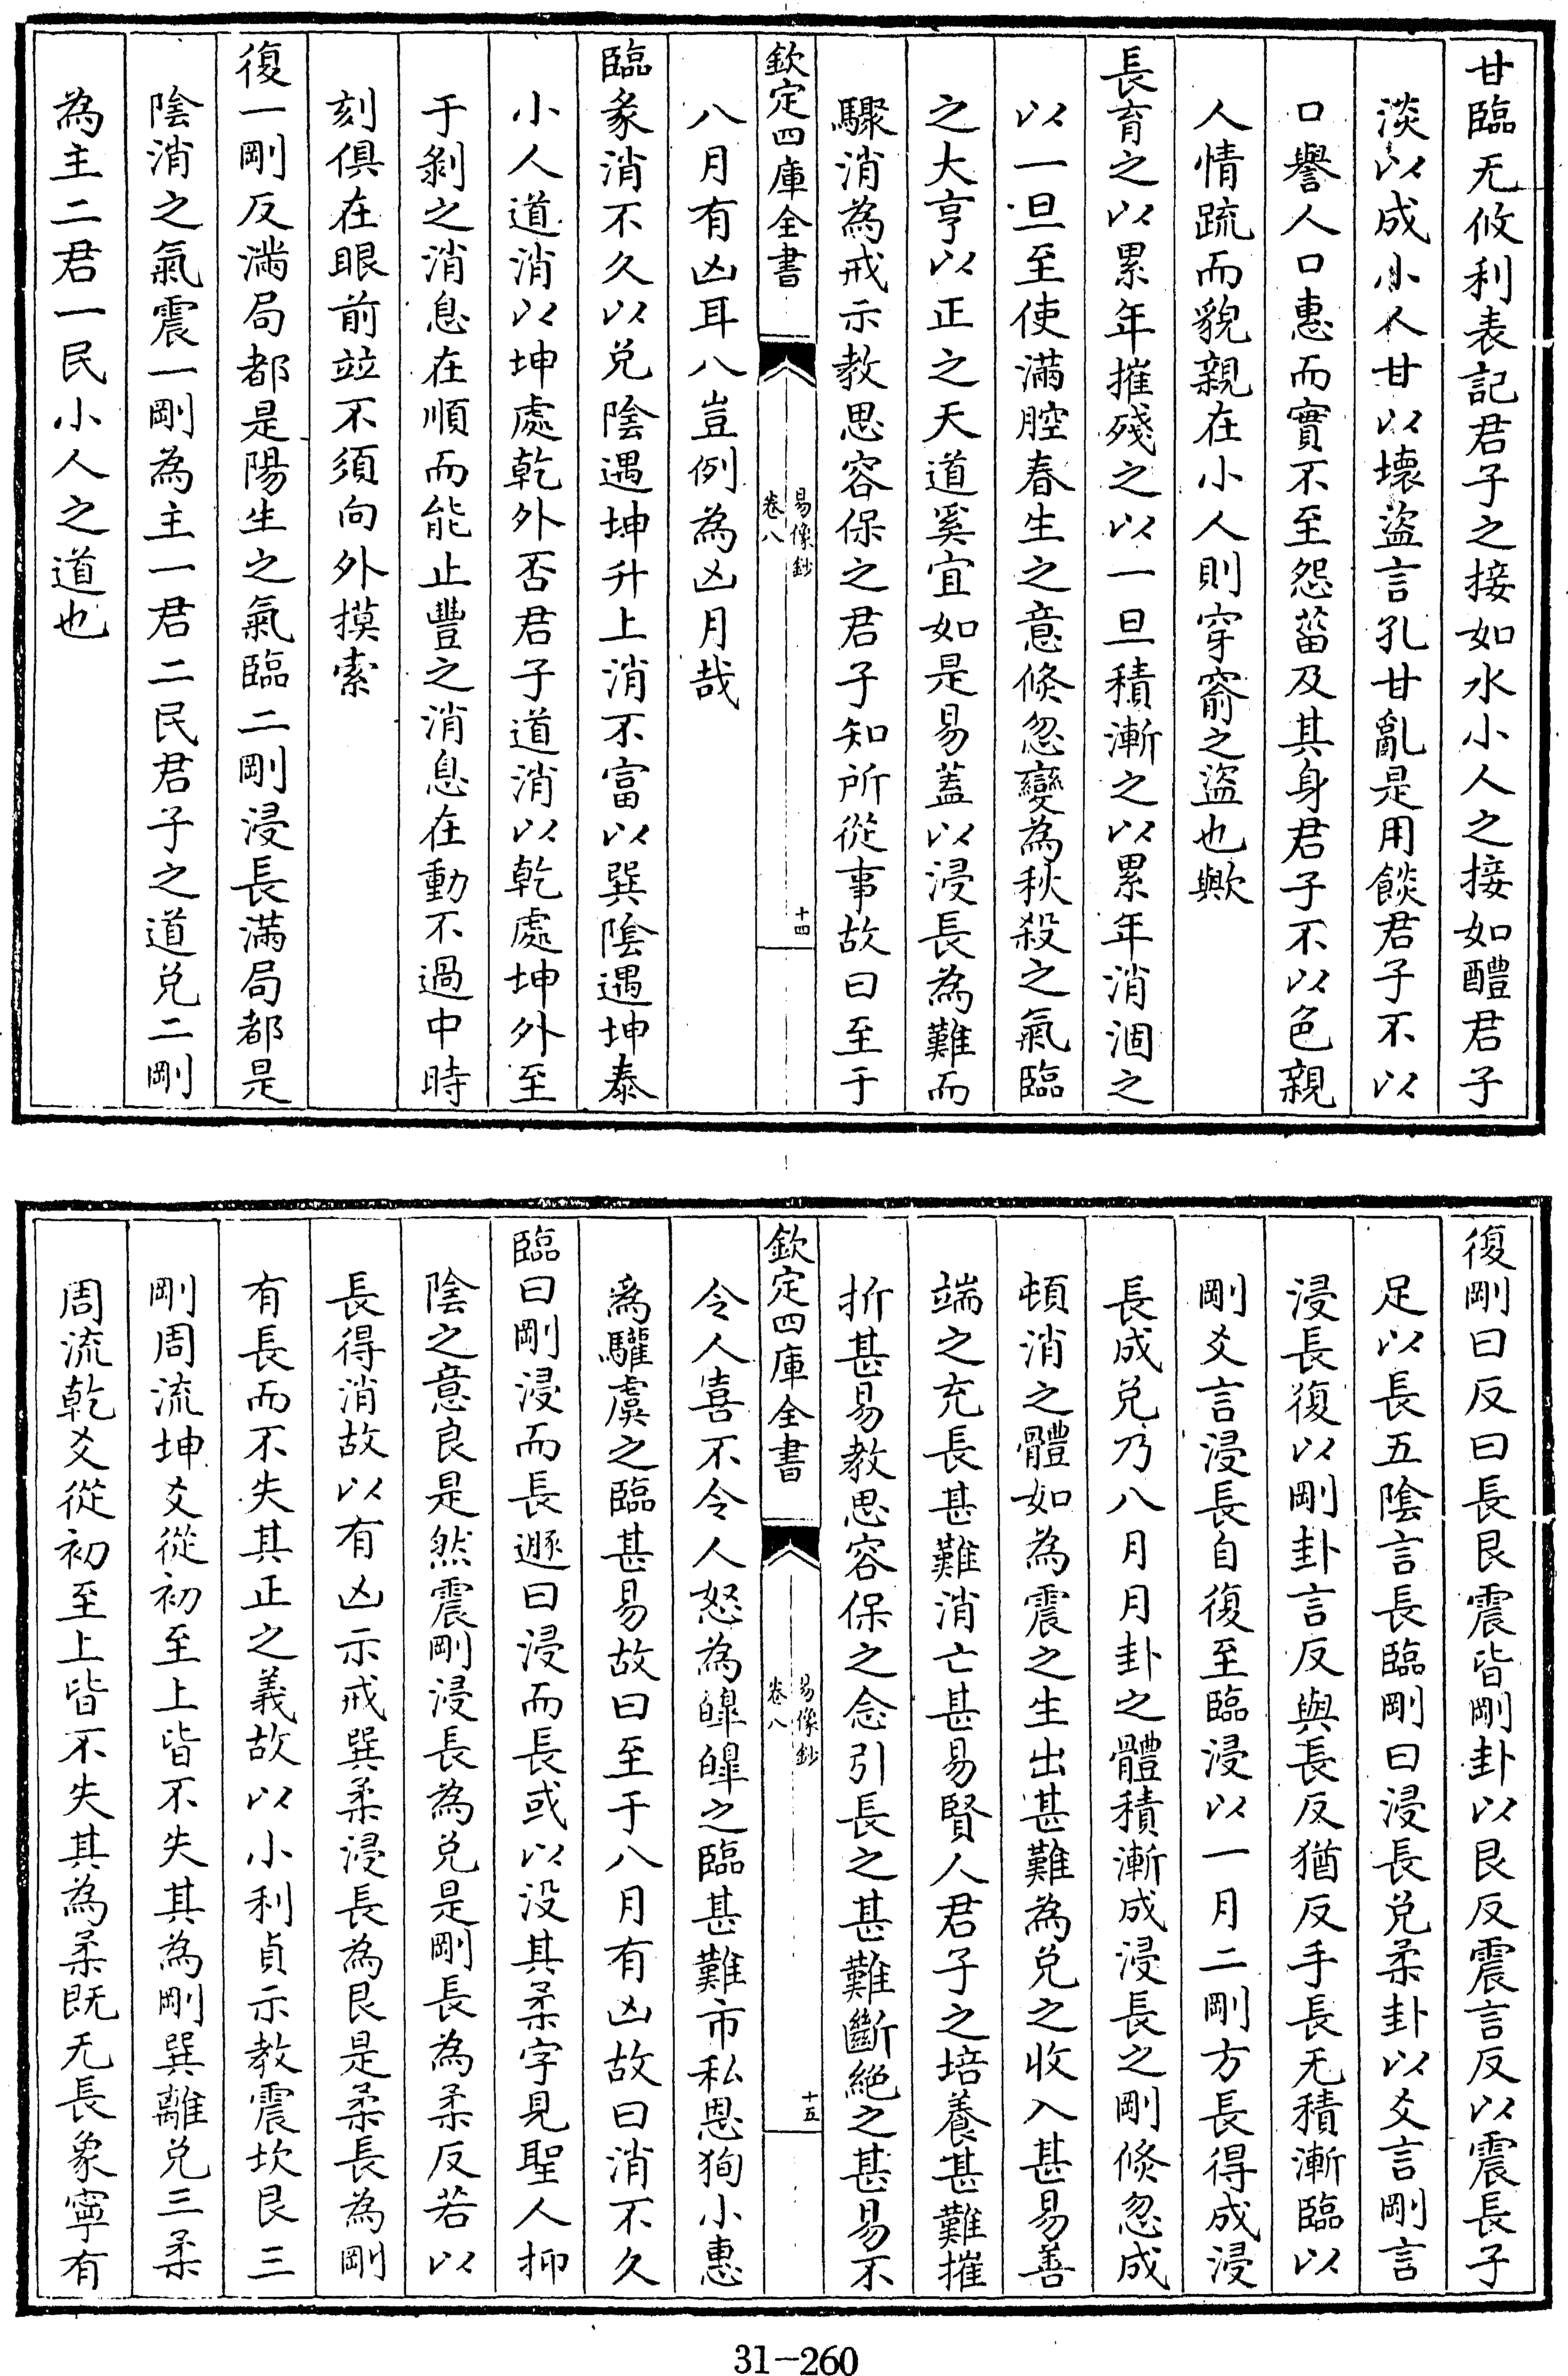 甘臨无攸利表記君子之接如水小人之接如醴君子
淡以成小人甘以壞盜言孔甘亂是用餤君子不以
口譽人口惠而實不至怨菑及其身君子不以色親
人情疏而貌親在小人則穿窬之盜也歟
長育之以累年摧殘之以一旦積漸之以累年消涸之
以一旦至使滿腔春生之意倏忽變為秋殺之氣臨
之大亨以正之天道奚宜如是易蓋以浸長為難而
驟消為戒示教思容保之君子知所從事故曰至于
欽定四庫全書
易像鈔
卷八
十四
八月有凶耳八豈例為凶月哉
臨彖消不久以兌陰遇坤升上消不富以巽陰遇坤泰
小人道消以坤處乾外否君子道消以乾處坤外至
于剝之消息在順而能止豐之消息在動不過中時
刻俱在眼前竝不須向外摸索
復一剛反滿局都是陽生之氣臨二剛浸長滿局都是
陰消之氣震一剛為主一君二民君子之道兌二剛
為主二君一民小人之道也
復剛曰反曰長艮震皆剛卦以艮反震言反以震長子
足以長五陰言長臨剛曰浸長兌柔卦以爻言剛言
浸長復以剛卦言反與長反猶反手長无積漸臨以
剛爻言浸長自復至臨浸以一月二剛方長得成浸
長成兌乃八月月卦之體積漸成浸長之剛倏忽成
頓消之體如為震之生出甚難為兌之收入甚易善
端之充長甚難消亡甚易賢人君子之培養甚難摧
折甚易教思容保之念引長之甚難斷絕之甚易不
欽定四庫全書
易像鈔
卷八
十五
令人喜不令人怒為皥皥之臨甚難市私恩狥小惠
為驩虞之臨甚易故曰至于八月有凶故曰消不久
臨曰剛浸而長遯曰浸而長或以沒其柔字見聖人抑
陰之意良是然震剛浸長為兌是剛長為柔反若以
長得消故以有凶示戒巽柔浸長為艮是柔長為剛
有長而不失其正之義故以小利貞示教震坎艮三
剛周流坤爻從初至上皆不失其為剛巽離兌三柔
周流乾爻從初至上皆不失其為柔既无長象寧有
31-260